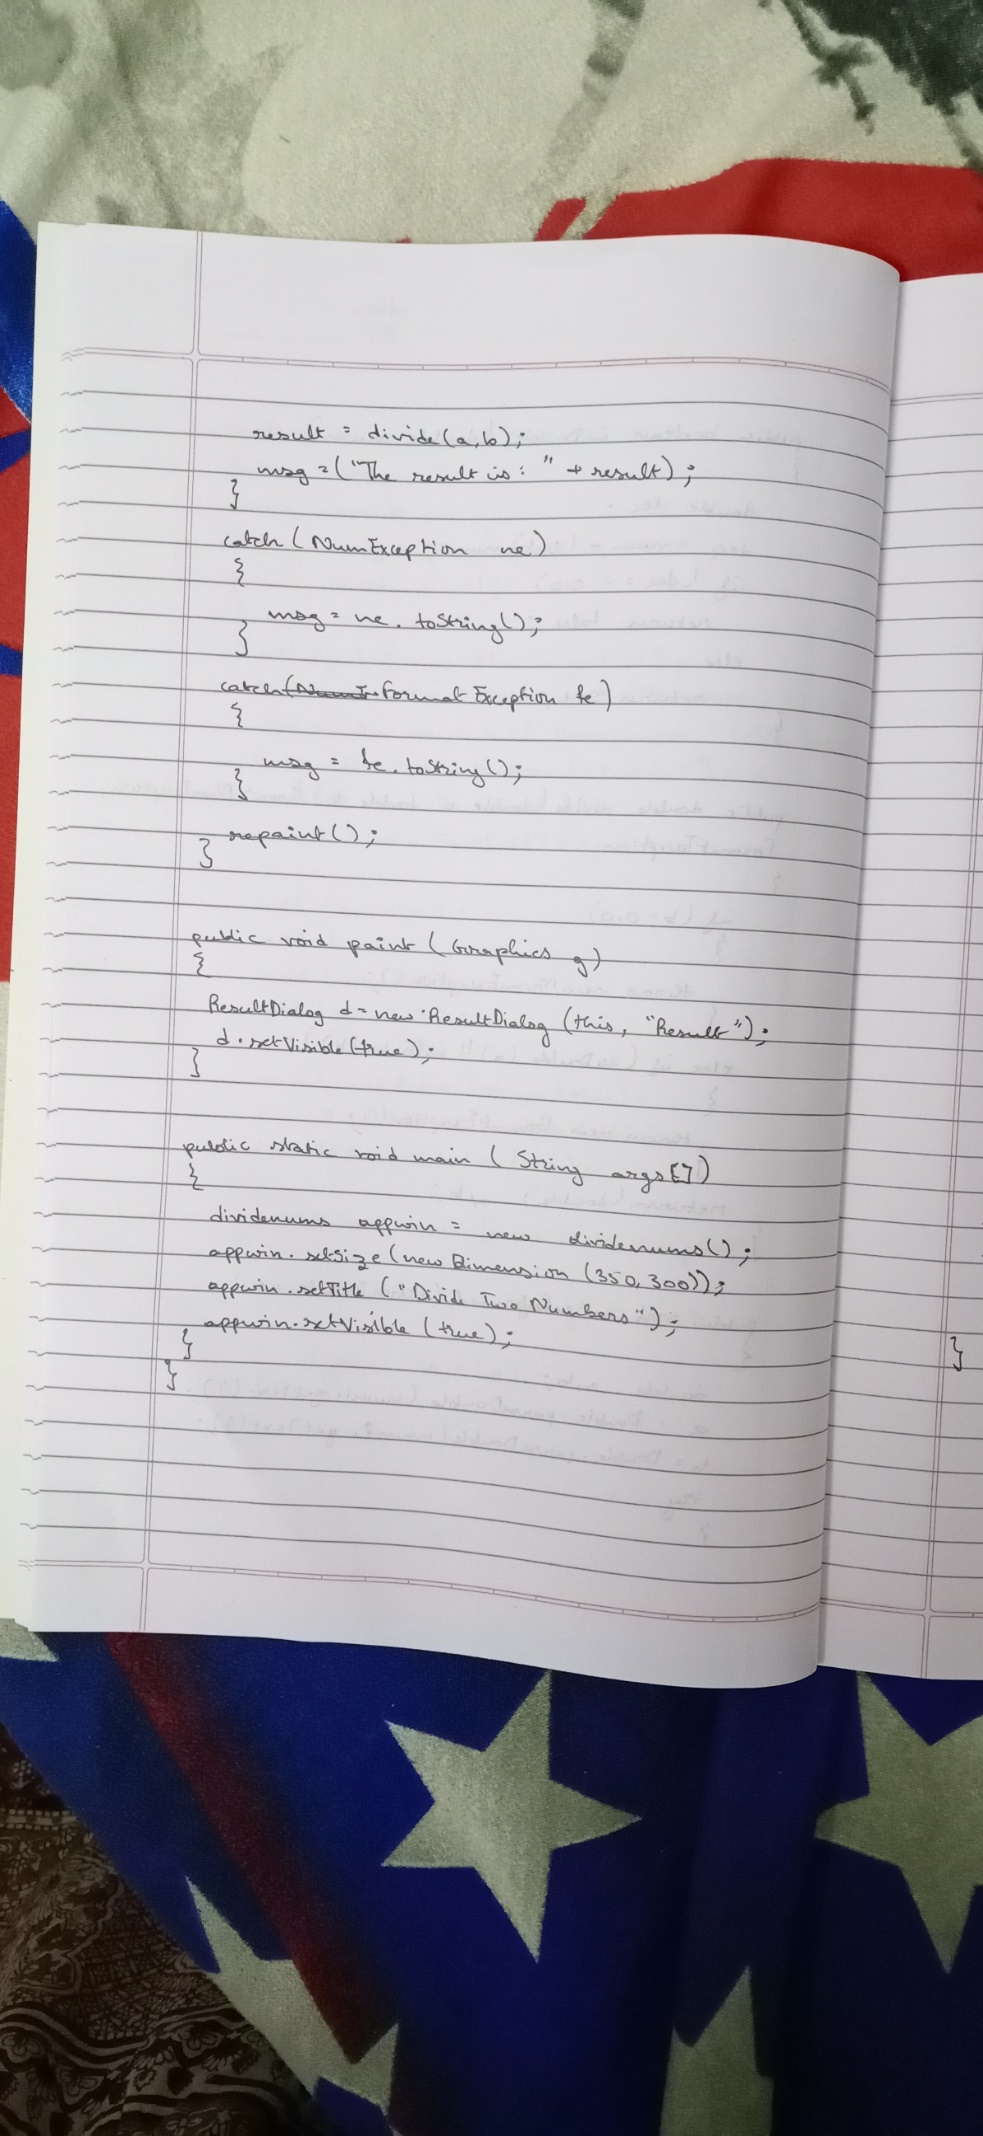 result = divide(a,b);
msg = ("The result is: " + result);
}
catch (NumException ne)
{
msg = ne.toString();
}
catch(FormatException fe)
{
msg = fe.toString();
}
repaint();
}
public void paint (Graphics g)
{
ResultDialog d = new ResultDialog (this, "Result");
d.setVisible(true);
}
public static void main ( String args[])
{
dividenums appwin = new dividenums();
appwin.setSize (new Dimension (350, 300));
appwin.setTitle ("Divide Two Numbers");
appwin.setVisible (true);
}
}
}